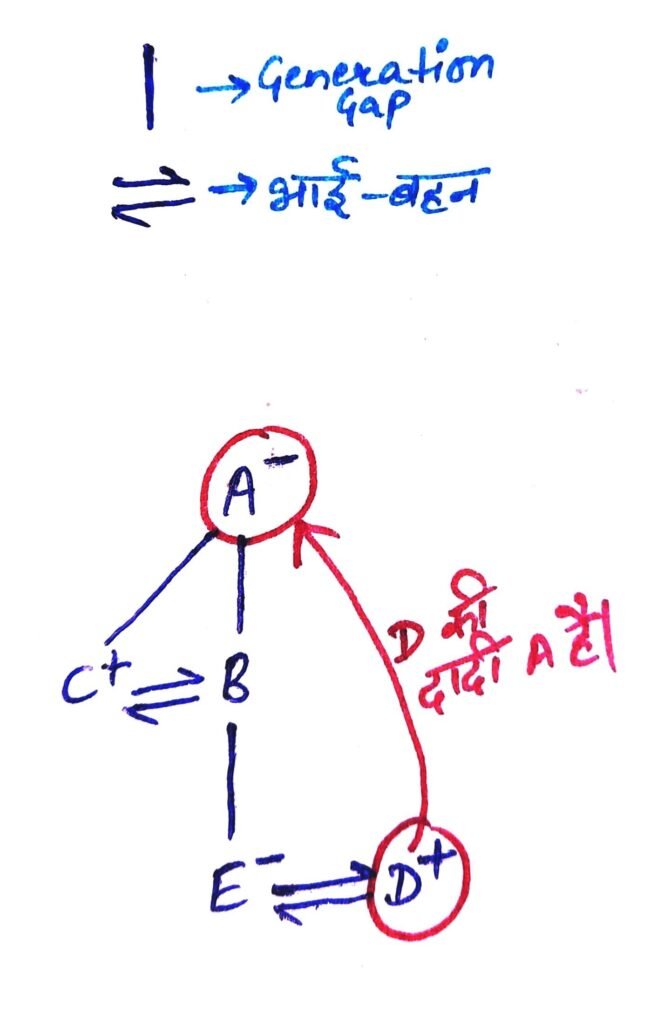 | → Generation
Gap
⇌ → भाई-बहन
A⁻
C⁺ ⇌ B
D की
दादी A है।
E⁻ ⇌ D⁺